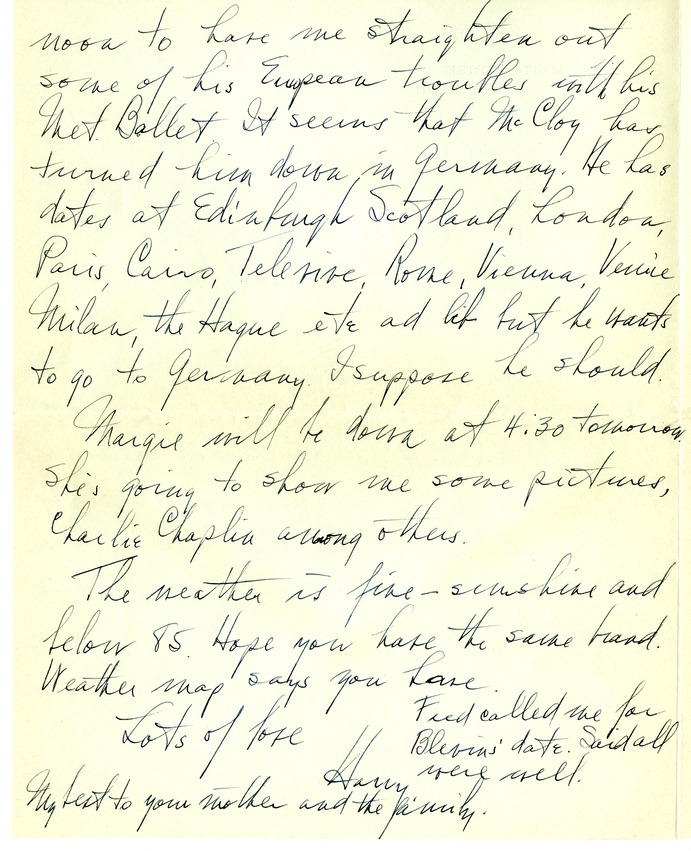 noon to have me straighten out
some of his European troubles with his
Met. Ballet It seems that McCloy has
turned him down in Germany. He has
dates at Edinburgh Scotland, London,
Paris, Cairo, Televive, Rome, Vienna, Venice
Milan, the Hague etc ad lib but he wants
to go to Germany. I suppose he should.
Margie will be down at 4:30 tomorrow.
She's going to show me some pictures,
Charlie Chaplin among others.
The weather is fine - sunshine and
below 85. Hope you have the same brand.
Weather map says you have.
Lots of love
Harry
Fred called me for
Blevins' date. Said all
were well.
My best to your mother and the family.